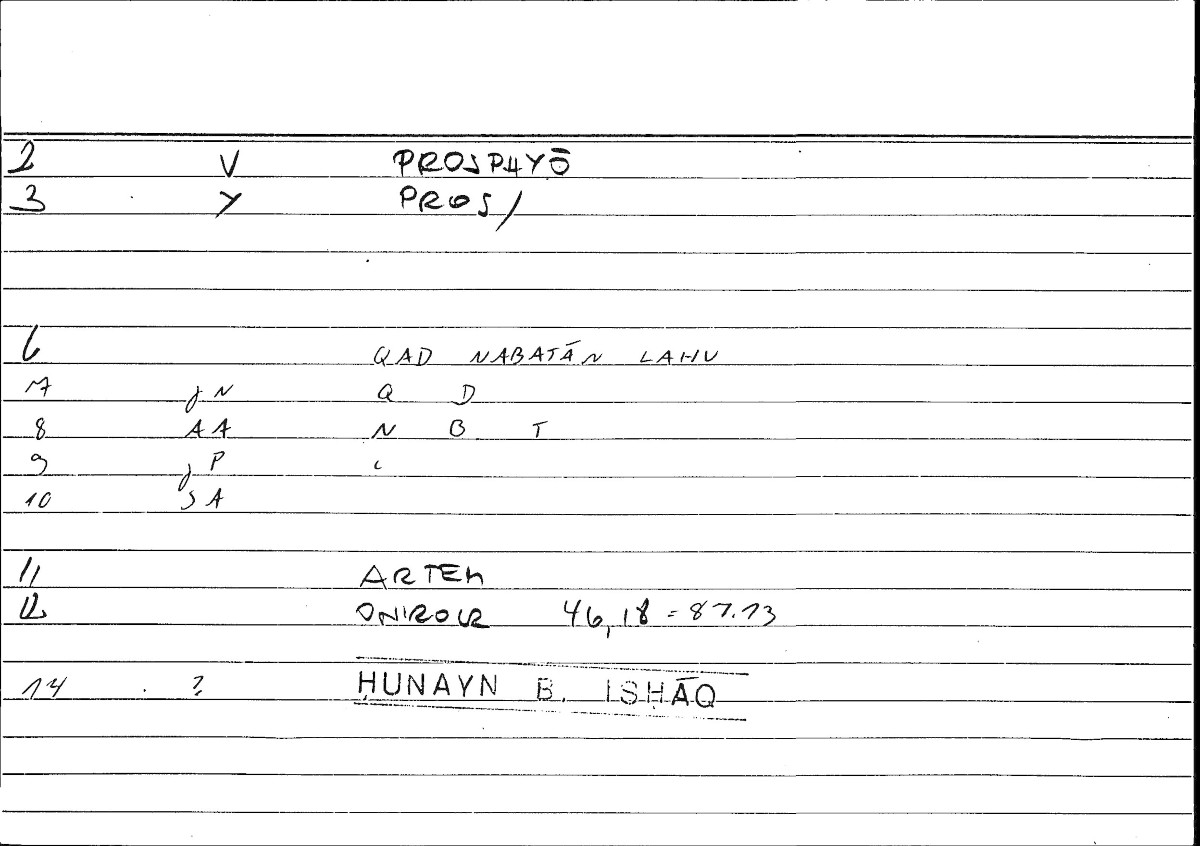 2 V PROSPHYŌ
3 Y PROS/
6 QAD NABATĀN LAHU
7 JN Q D
8 AA N B T
9 JP L
10 SA
11 ARTEM
12 ONIROCR 46,18 = 87.13
14 ? ḤUNAYN B. ISḤĀQ